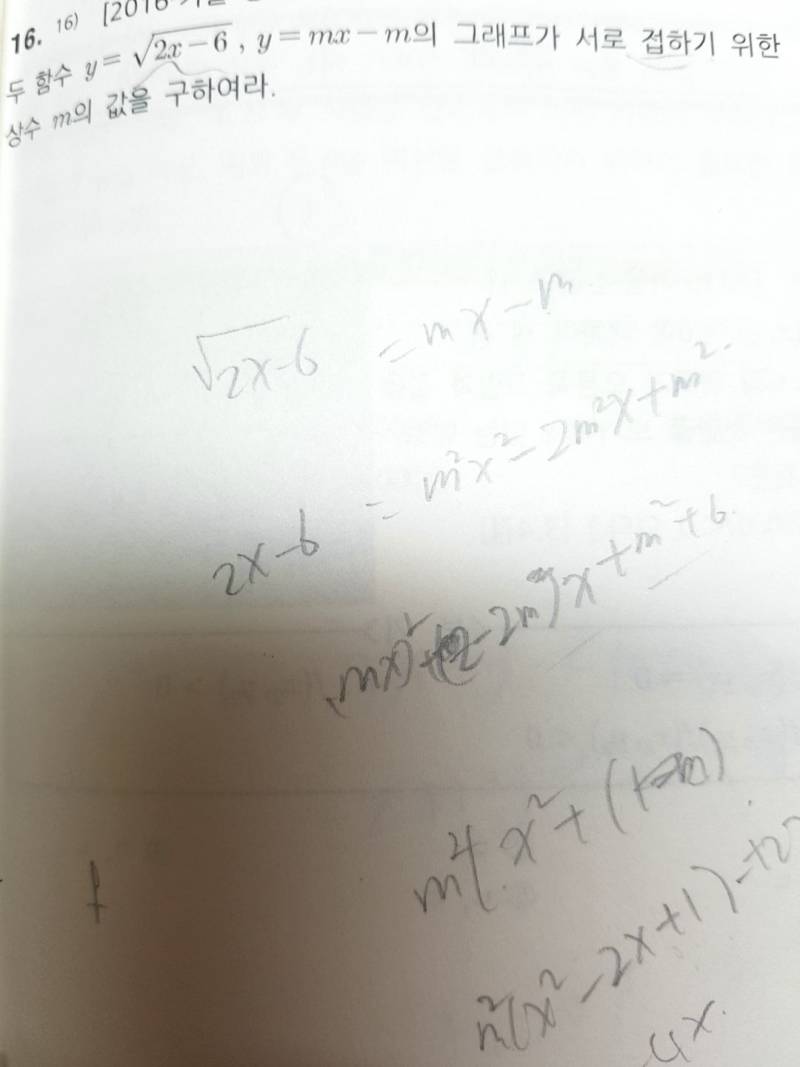 16. 16) [2016
두 함수 y=√(2x-6), y=mx-m의 그래프가 서로 접하기 위한
상수 m의 값을 구하여라.
√2x-6 = mx-m
2x-6 = m²x²-2m²x+m².
(mx)²+ -2m x+m²+6
m ( x²+(
m²(x²-2x+1)
4x